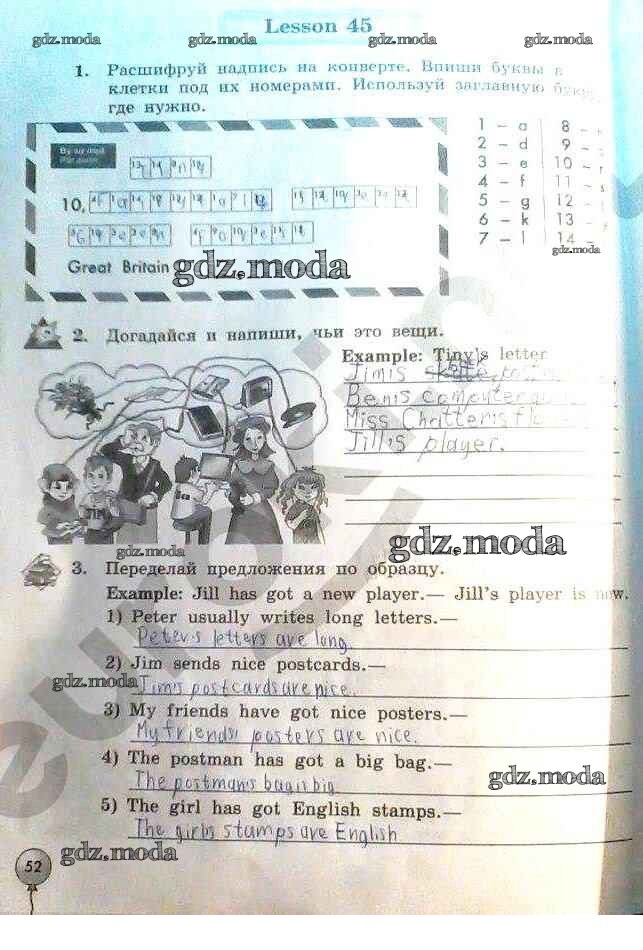 Lesson 45
gdz.moda gdz.moda gdz.moda gdz.moda
1. Расшифруй надпись на конверте. Впиши буквы в
клетки под их номерами. Используй заглавную
где нужно.
By air mail
Par avion
10,
Great Britain
gdz.moda
1 – a 8 –
2 – d 9 –
3 – e 10 –
4 – f 11 –
5 – g 12 –
6 – k 13 –
7 – l 14 –
gdz.moda
2. Догадайся и напиши, чьи это вещи.
Example: Tiny's letter
Jim's
Ben's computer
Miss Chatter's
Jill's player.
JIM
gdz.moda
gdz.moda
3. Переделай предложения по образцу.
Example: Jill has got a new player.— Jill's player is new.
1) Peter usually writes long letters.—
Peter's letters are long
2) Jim sends nice postcards.—
gdz.moda
Jim's postcards are nice.
3) My friends have got nice posters.—
My friends' posters are nice.
4) The postman has got a big bag.—
The postman's bag is big
gdz.moda
5) The girl has got English stamps.—
The girls stamps are English
52
gdz.moda
eurokin